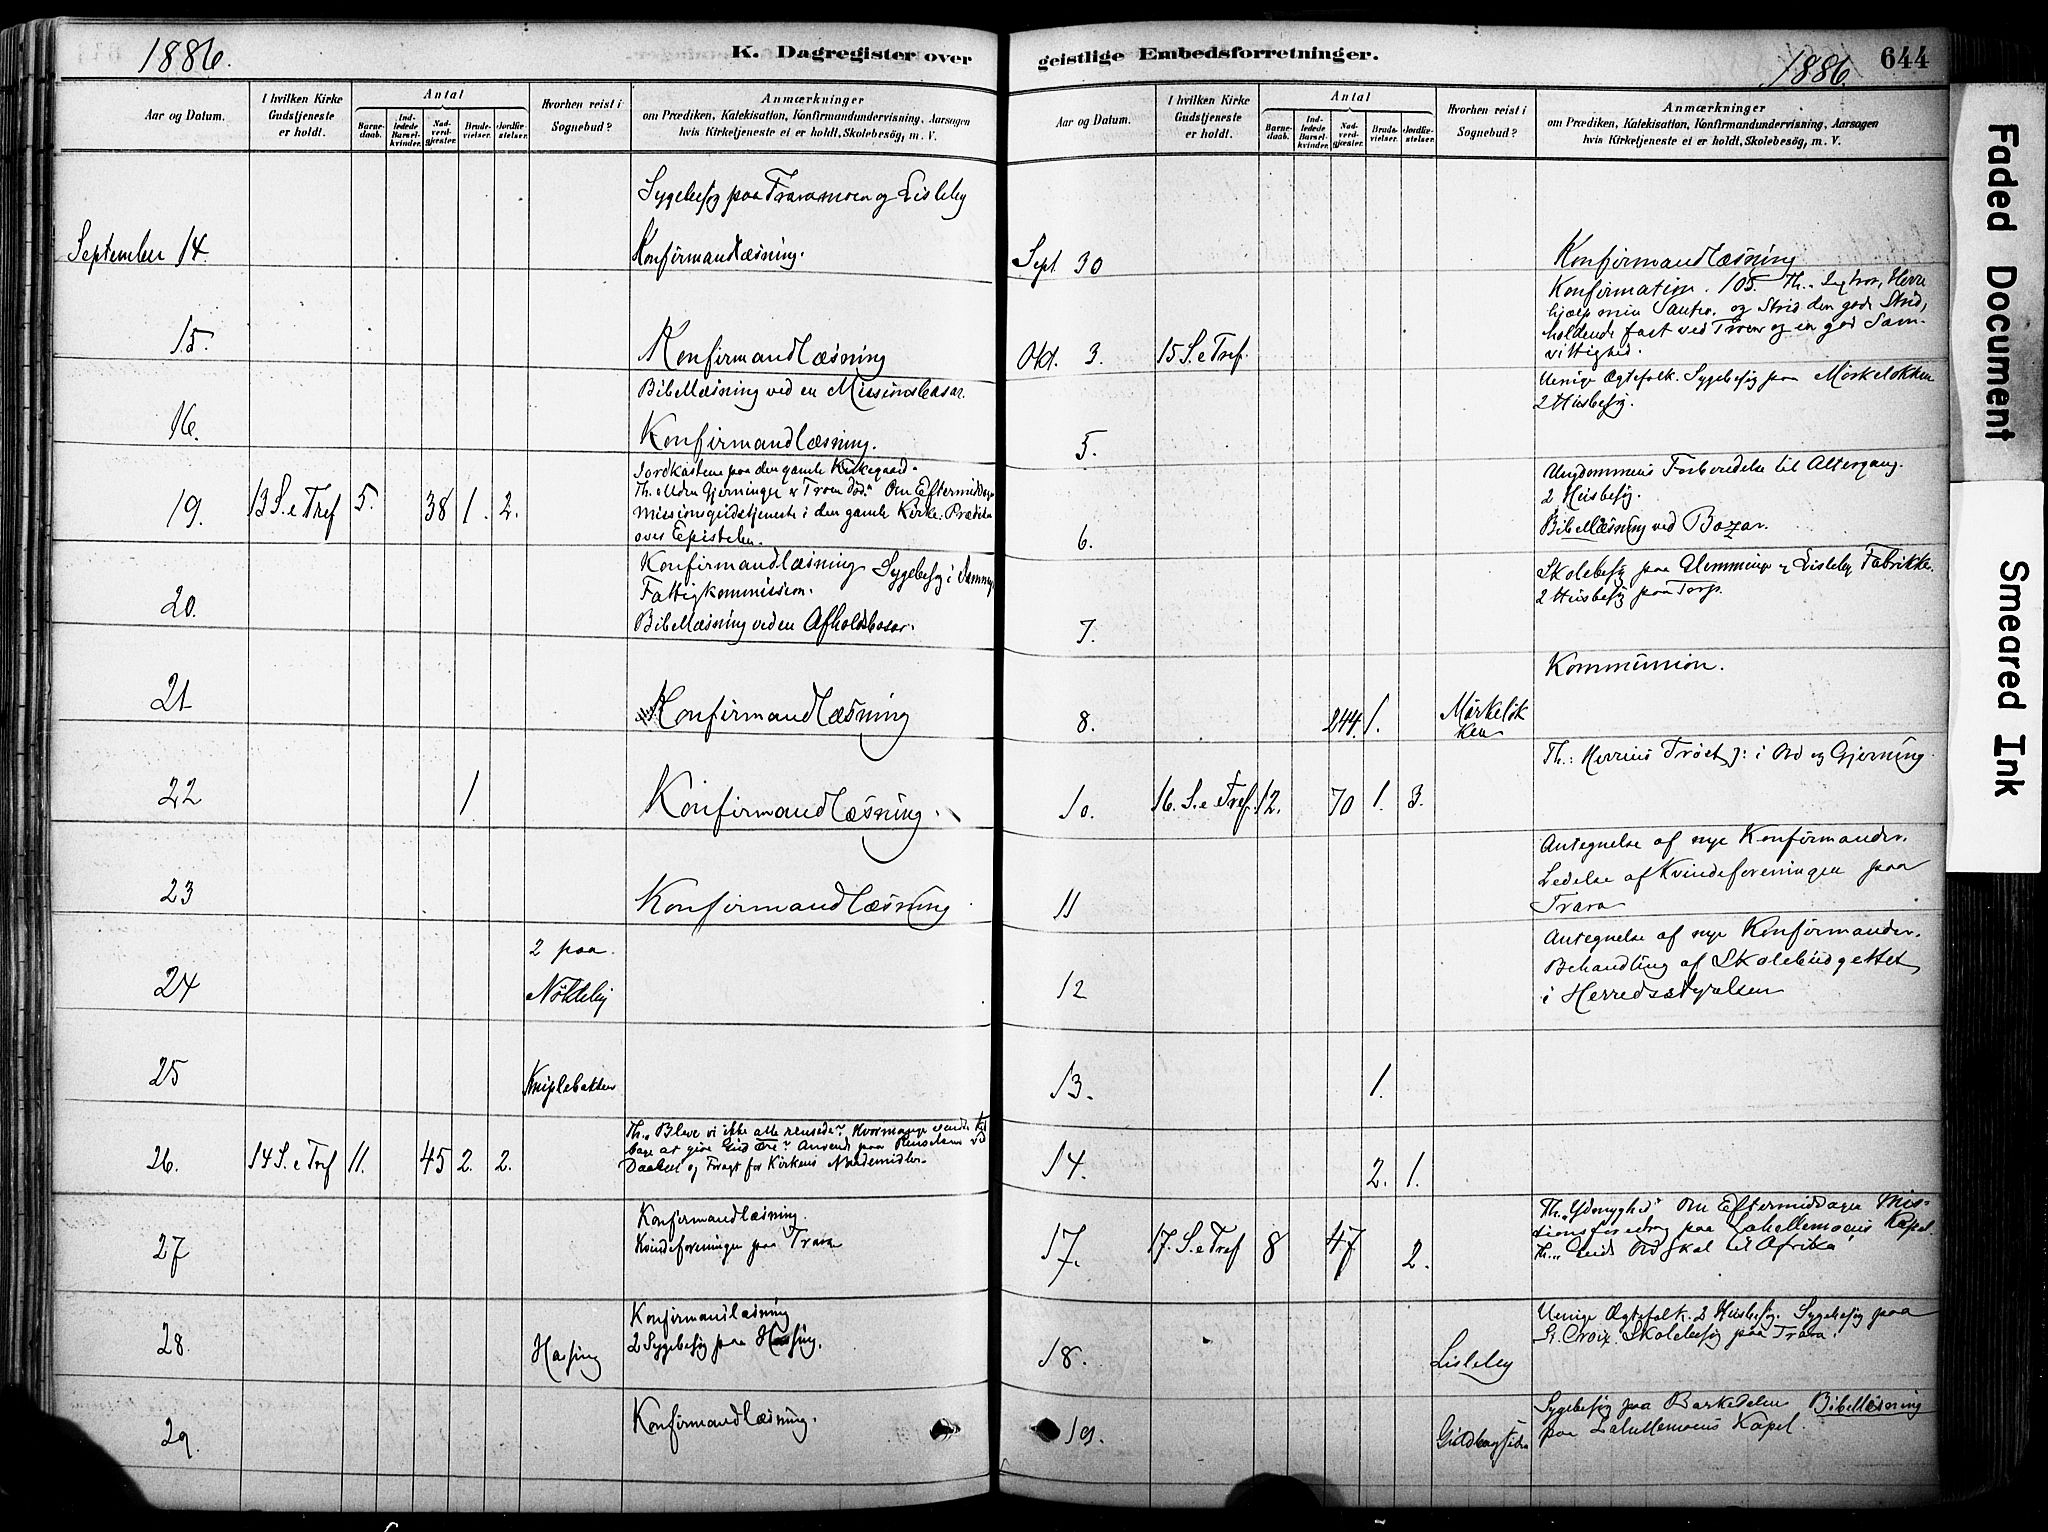 1886.
K. Dagregister over
Aar og Datum.
I hvilken Kirke Gudstjeneste er holdt.
Antal
Barnedaab.
Indledede Barselkvinder.
Nadverdgjester.
Brudevielser.
Jordfæstelser.
Hvorhen reist i Sognebud?
Anmærkninger
om Prædiken, Katekisation, Konfirmandundervisning, Aarsagen
hvis Kirketjeneste ei er holdt, Skolebesög, m. V.
Sygebesøg paa Traramoen og Lisleby
September 14. Konfirmandlæsning.
15. Konfirmandlæsning
Bibellæsning ved en Missionsbasar.
16. Konfirmandlæsning.
Jordkastene paa den gamle Kirkegaard.
19. 13 S. e Tref 5. 38 1. 2. Th. "Uden Gjerninger er Troen død." Om Eftermiddagen
Missionsgudstjeneste i den gamle Kirke. Prædiken
over Epistelen.
20. Konfirmandlæsning Sygebesøg i
Fattigkommission.
Bibellæsning ved en Afholdsbasar.
21 Konfirmandlæsning
22 1 Konfirmandlæsning.
23 Konfirmandlæsning
24 2 paa.
Nökleby
25 Kniplebakken
26. 14 S. e Tref 11. 45 2. 2. Th. "Bleve vi ikke alle rensede? Hvormange vendte til
bage at give Gud Ære? Ansvend paa Renselsen ved
Daaben og Foragt for Kirkens Naademidler.
27 Konfirmandlæsning.
Kvindeforeningen paa Trara
28. Hassing Konfirmandlæsning
2 Sygebesøg paa Hassing.
29. Konfirmandlæsning.
geistlige Embedsforretninger.
1886.
644
Aar og Datum.
I hvilken Kirke Gudstjeneste er holdt.
Antal
Barnedaab.
Indledede Barselkvinder.
Nadverdgjester.
Brudevielser.
Jordfæstelser.
Hvorhen reist i Sognebud?
Anmærkninger
om Prædiken, Katekisation, Konfirmandundervisning, Aarsagen
hvis Kirketjeneste ei er holdt, Skolebesög, m. V.
Sept 30 Konfirmandlæsning
Konfirmation. 105. Th. "Jeg tror, Herre
hjælp min Vantro. og Strid den gode Strid,
holdende fast ved Troen og en god Sam-
vittighed.
Okt. 3. 15 S. e Tref.
Uenige Ægtefolk. Sygebesøg paa Mørkeløkken
2 Husbesøg.
5.
Ungdommens Forberedelse til Altergang.
2 Husbesøg.
6. Bibellæsning ved Bazar.
Skolebesøg paa Glemminge og Lisleby Fabrikke.
2 Husbesøg paa Torp.
7.
Kommunion.
8. 244. 1. Mørkeløk
ken
Th.: Herrens Trøst ɔ: i Ord og Gjerning.
10. 16. S. e Tref. 12. 70 1. 3.
Antegnelse af nye Konfirmander.
Ledelse af Kvindeforeningen paa
11 Trara
Antegnelse af nye Konfirmander.
Behandling af Skolebudgettet
12 i Herredsstyrelsen
13. 1.
14. 2. 1.
Th. "Ydmyghed" Om Eftermiddagen Mis-
sionsforedrag paa Lahellemoens Kapel.
17. 17. S. e Tref 8 47 2. Th. "Guds Ord skal til Afrika"
Uenige Ægtefolk. 2 Husbesøg. Sygebesøg paa
St. Croix. Skolebesøg paa Trara.
18. Lisleby
Sygebesøg paa Barkedalen Bibellæsning
19. paa Lahellemoens Kapel.
Faded Document
Smeared Ink